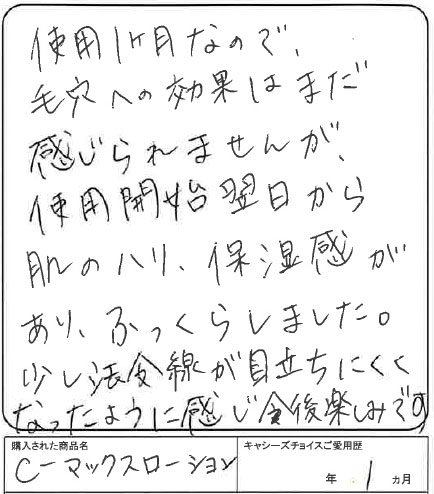 使用1ヶ月なので、
毛穴への効果はまだ
感じられませんが、
使用開始翌日から
肌のハリ、保湿感が
あり、ふっくらしました。
少し法令線が目立ちにくく
なったように感じ今後楽しみです
購入された商品名
キャシーズチョイスご愛用歴
C-マックスローション
年 1 ヵ月